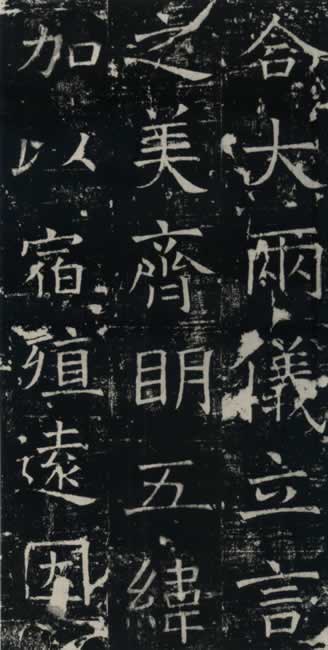 合大兩儀立言
之美齊眀五緯
加以宿殖遠因